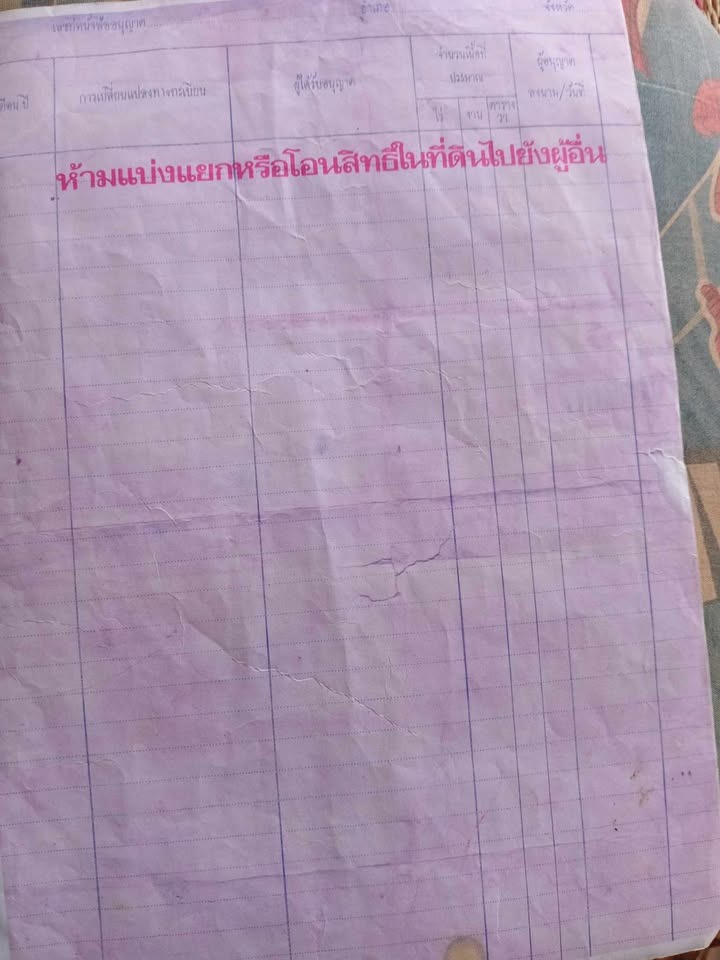 เลขที่หนังสืออนุญาต..... อำเภอ จังหวัด
เดือน ปี
การเปลี่ยนแปลงทางทะเบียน
ผู้ได้รับอนุญาต
จำนวนเนื้อที่
ประมาณ
ไร่ งาน ตาราง
วา
ผู้อนุญาต
ลงนาม/วันที่
ห้ามแบ่งแยกหรือโอนสิทธิในที่ดินไปยังผู้อื่น